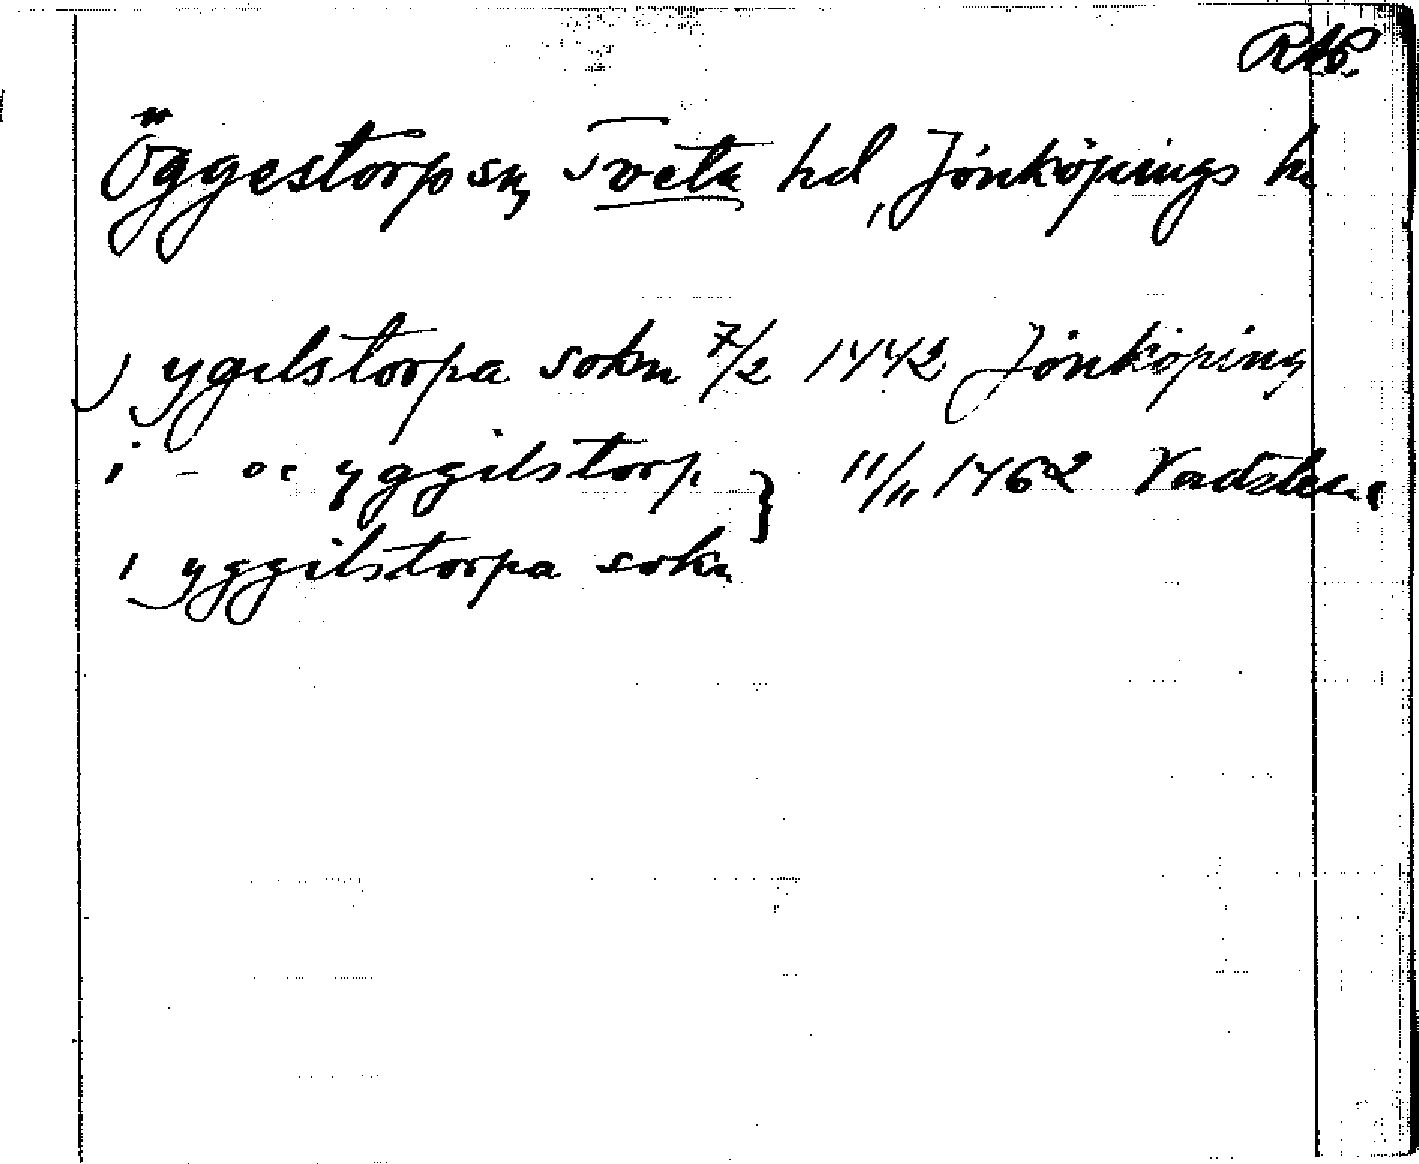 RAP.
Öggestorp sn, Tveta hd, Jönköpings l
j ygilstorpa sokn 7/2 1442 Jönköping
i - oc yggilstorp } 11/11 1462 Vadstena
i yggilstorpa sokn